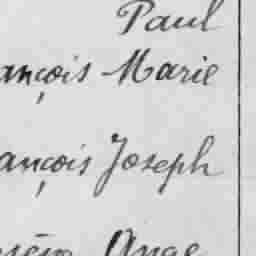 Paul
ançois Marie
ançois Joseph
Ange